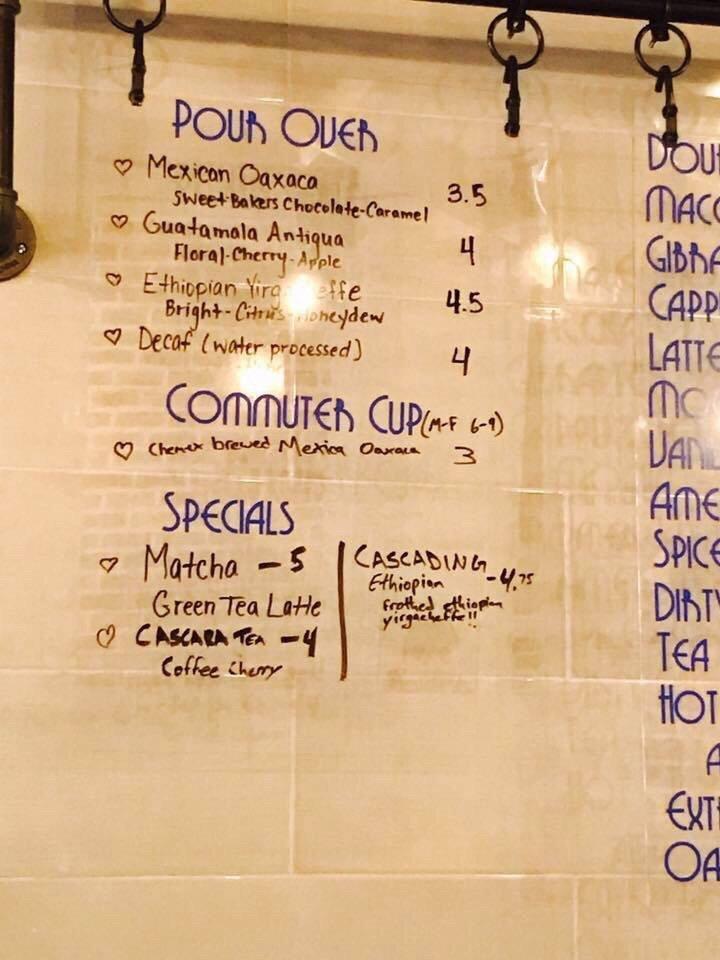 POUR OVER
Mexican Oaxaca
Sweet-Bakers Chocolate-Caramel
3.5
Guatamala Antiqua
Floral-Cherry-Apple
4
Ethiopian
Bright-Citrus-Honeydew
4.5
Decaf (water processed)
4
COMMUTER CUP (M-F 6-9)
Chemex brewed Mexica Oaxaca 3
SPECIALS
Matcha - 5
Green Tea Latte
CASCARA TEA - 4
Coffee Cherry
CASCADING
Ethiopian - 4.75
frothed ethiopian
yirgacheffe!!
DOU
MACC
GIBRA
CAPP
LATTE
MO
VANI
AME
SPICE
DIRTY
TEA
HOT
A
EXT
OA